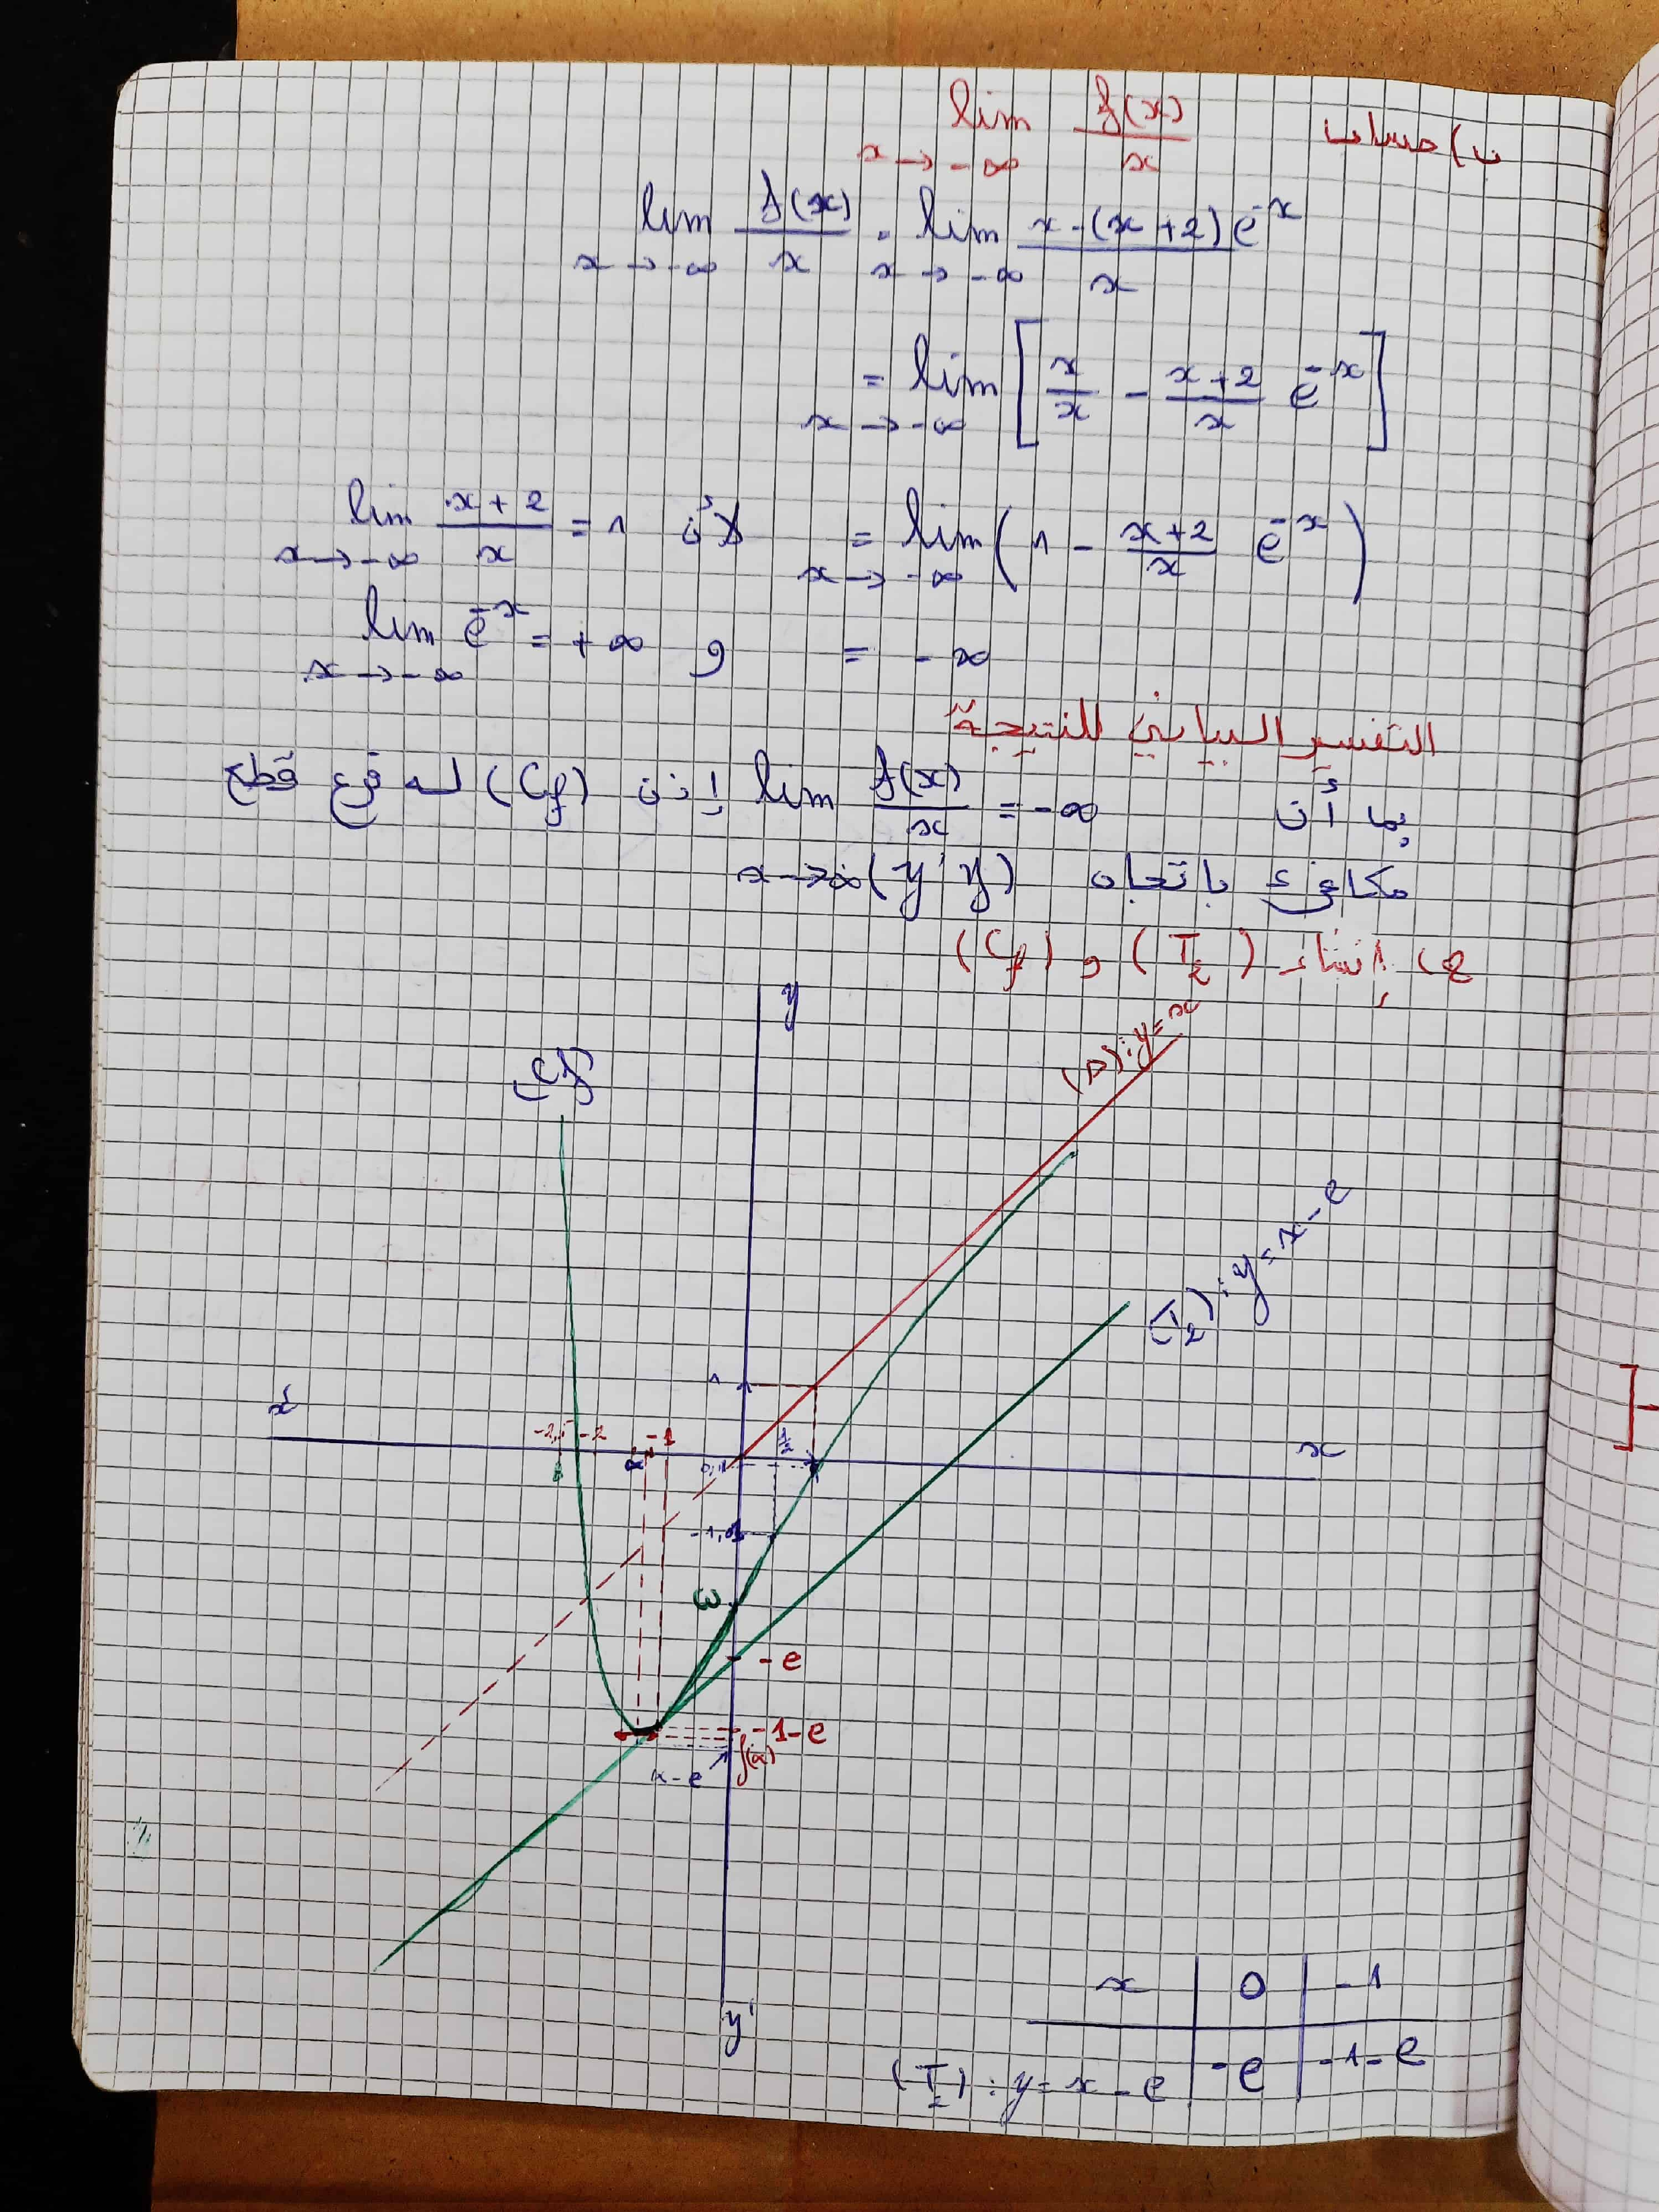 ب) حساب lim f(x)/x x→-∞
lim f(x)/x = lim x-(x+2)e^-x / x
x→-∞ x→-∞
= lim [x/x - x+2/x e^-x]
x→-∞
= lim (1 - x+2/x e^-x) لأن lim x+2/x = 1
x→-∞ x→-∞
= -∞ و lim e^-x = +∞
x→-∞
التفسير البياني للنتيجة
بما أن lim f(x)/x = -∞ إذن (Cf) له فرع قطع
مكافئ باتجاه (y'y) x→-∞
ج) إنشاء (T2) و (Cf)
y
(Cf)
(D): y = x
(T2): y = x - e
1
x'
-2,5
-2
α
-1
1/2
x
ω
-e
-1-e
f(α)
α-e
y'
x | 0 | -1
(T2): y = x - e | -e | -1-e